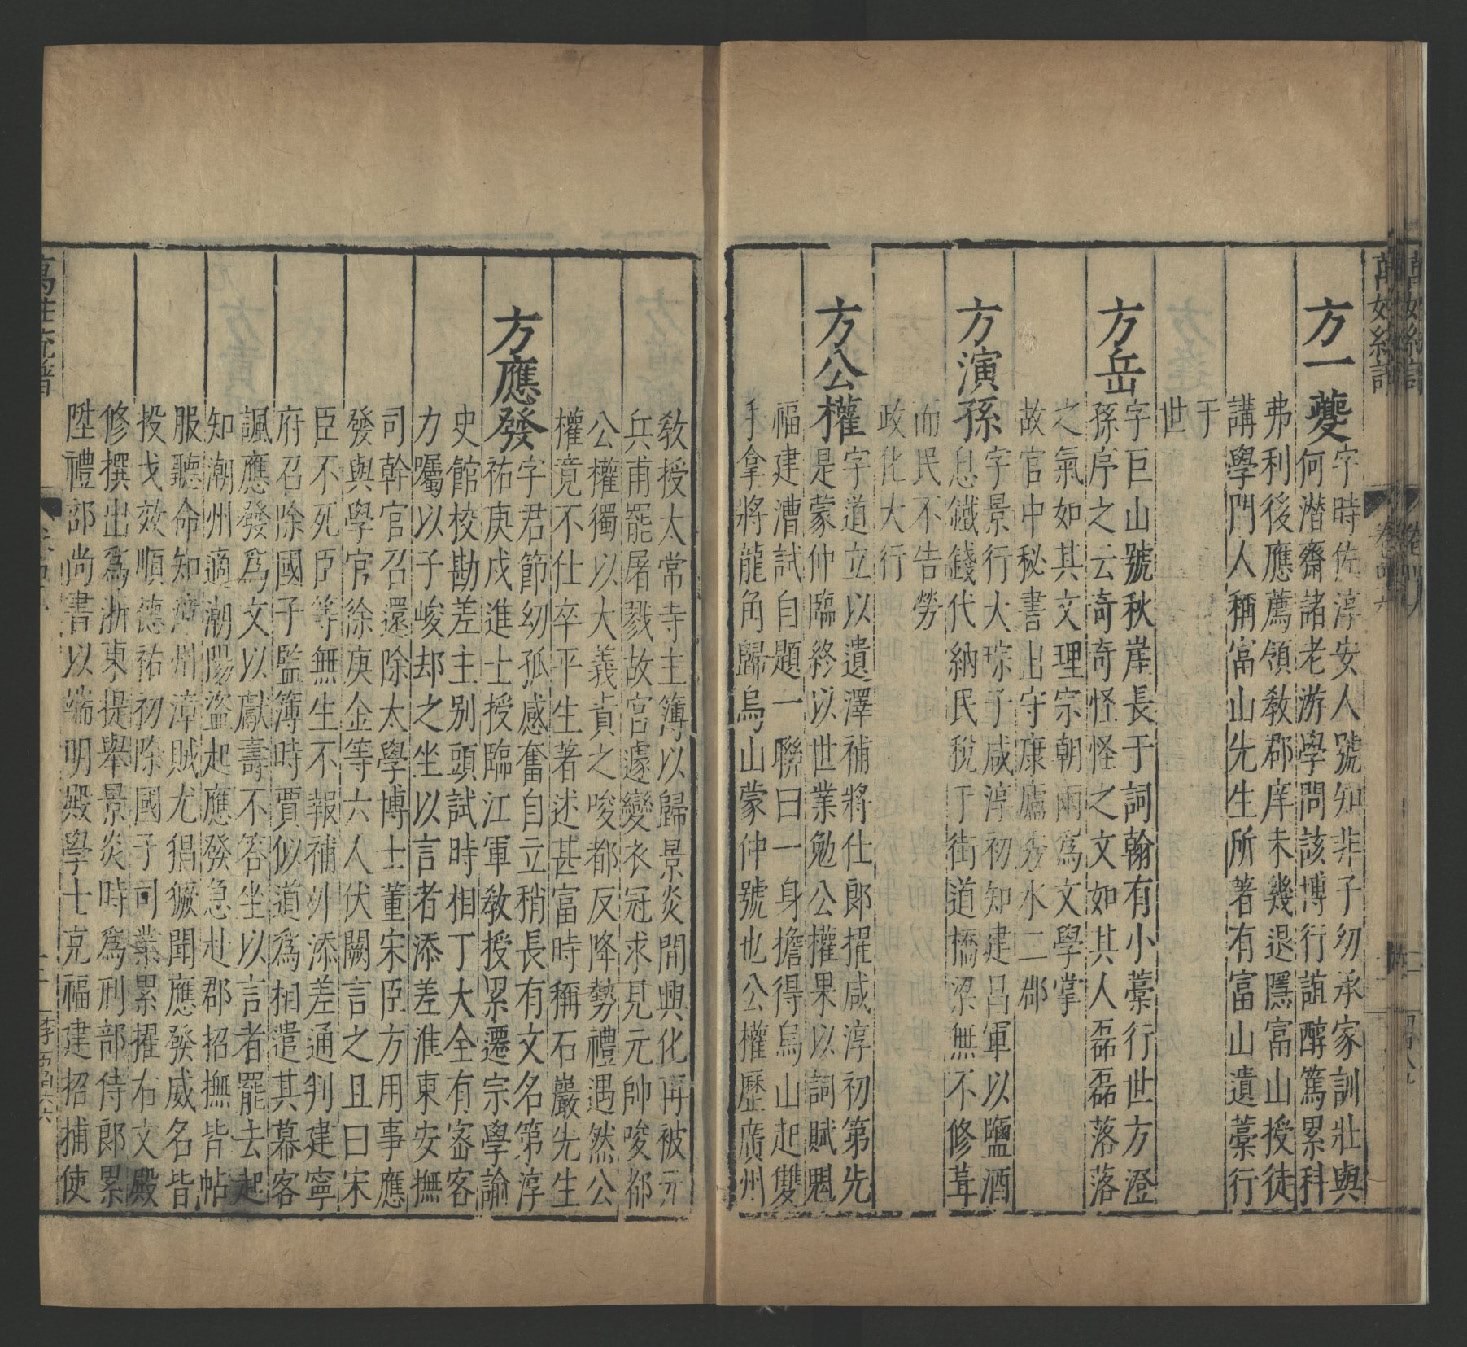 方一夔字時佐淳安人號知非子幼承家訓壯與
何潜齋諸老游學問該博行誼醇篤累科
弗利後應薦領教郡庠未幾退隱富山授徒
講學門人稱富山先生所著有富山遺藁行
于
世
方岳字巨山號秋崖長于詞翰有小藁行世方澄
孫序之云奇奇怪怪之文如其人磊磊落落
之氣如其文理宗朝兩為文學掌
故官中秘書出守康廬水二郡
方演孫字景行大琮子咸淳初知建昌軍以鹽酒
息鐵錢代納民稅于街道橋梁無不修葺
而民不告勞
政化大行
方公權字道立以遺澤補將仕郎擢咸淳初第先
是蒙仲臨終以世業勉公權果以詞賦魁
福建漕試自題一聯曰一身擔得烏山起雙
手拿將龍角歸烏山蒙仲號也公權歷廣州
教授太常寺主簿以歸景炎間興化再被元
兵甫罷屠戮故宮遽變衣冠求見元帥唆都
公權獨以大義責之唆都反降勢禮遇然公
權竟不仕卒平生著述甚富時稱石巖先生
方應發字君節幼孤感奮自立稍長有文名第淳
祐庚戌進士授臨江軍教授累遷宗學諭
史館校勘差主別頭試時相丁大全有密客
力屬以子峻却之坐以言者添差淮東安撫
司幹官召還除太學博士董宋臣方用事應
發與學官徐庚金等六人伏闕言之且曰宋
臣不死臣等無生不報補外添差通判建寧
府召除國子監簿時賈似道為相遣其幕客
諷應發為文以獻壽不答坐以言者罷去起
知潮州適潮陽盜起應發急赴郡招撫皆帖
服聽命知州漳賊尤猖獗聞應發威名皆
投戈效順德祐初除國子司業累擢右文殿
修撰出為浙東提舉景炎時為刑部侍郎累
陞禮部尚書以端明殿學士克福建招捕使